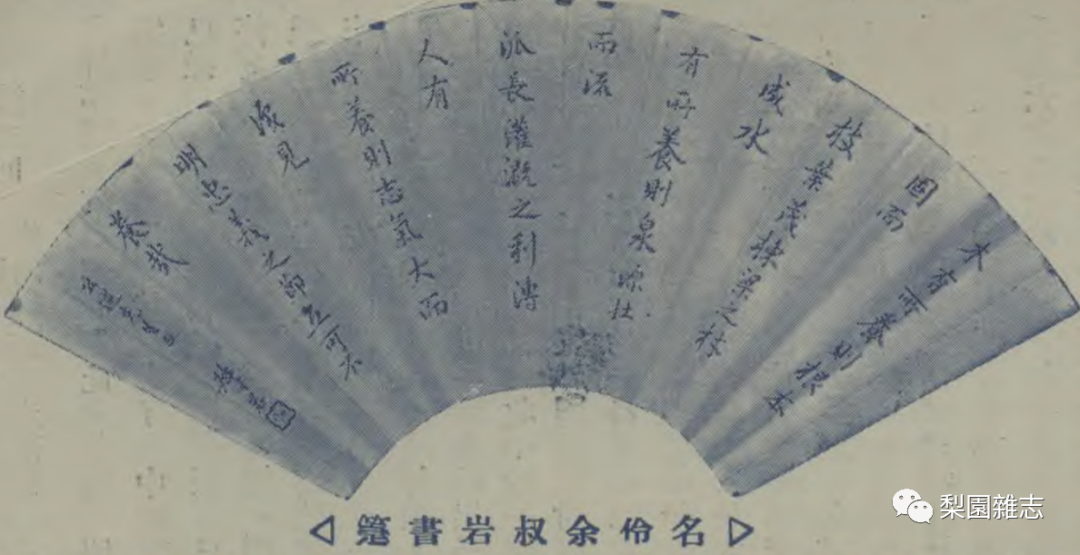 木有所養則根本
固而
枝葉茂棟梁之材
成水
有所養則泉源壯
而流
派長灌溉之利溥
人有
所養則志氣大而
識見
明忠義之節立可不
養哉
名伶余叔岩書箑
梨園雜志